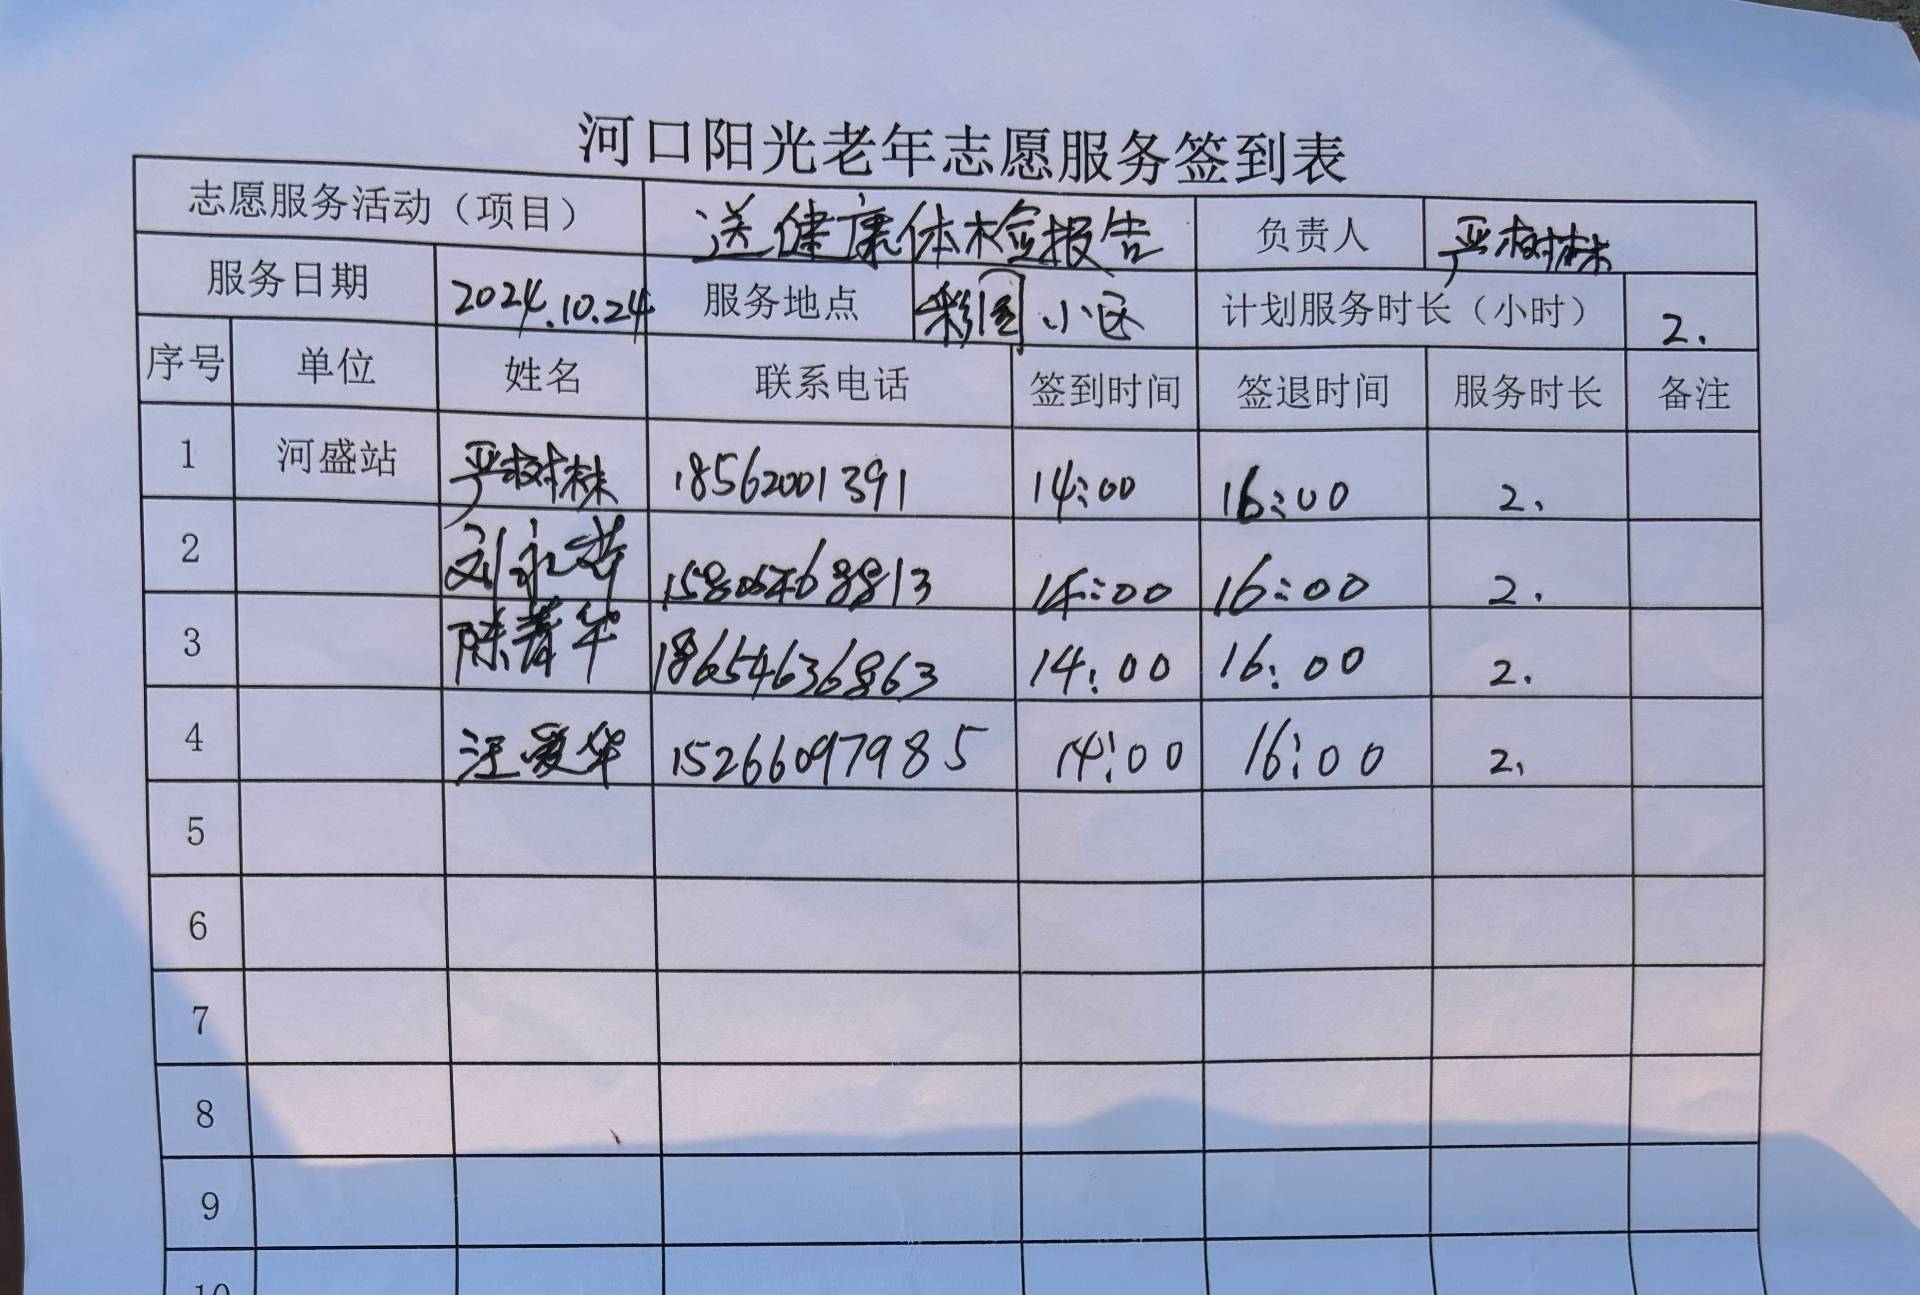 河口阳光老年志愿服务签到表
志愿服务活动（项目） 送健康体检报告 负责人 严树林
服务日期 2024.10.24 服务地点 小区 计划服务时长（小时） 2.
序号 单位 姓名 联系电话 签到时间 签退时间 服务时长 备注
1 河盛站 严树林 18562001391 14:00 16:00 2.
2 刘永芳 15805468813 14:00 16:00 2.
3 陈菁华 18654636863 14:00 16:00 2.
4 汪爱华 15266097985 14:00 16:00 2.
5
6
7
8
9
10